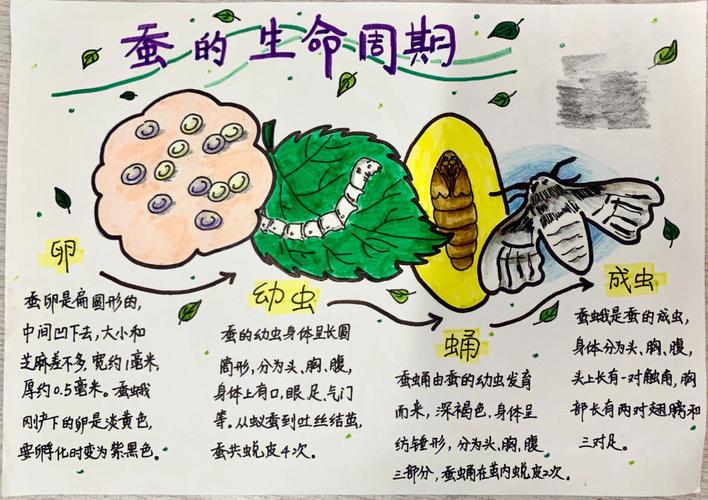 蚕的生命周期
卵
蚕卵是扁圆形的,
中间凹下去,大小和
芝麻差不多,宽约1毫米,
厚约0.5毫米。蚕蛾
刚产下的卵是淡黄色,
要孵化时变为紫黑色。
幼虫
蚕的幼虫身体呈长圆
筒形,分为头、胸、腹,
身体上有口,眼、足、气门
等。从蚁蚕到吐丝结茧,
蚕共蜕皮4次。
蛹
蚕蛹由蚕的幼虫发育
而来,深褐色,身体呈
纺锤形,分为头、胸、腹
三部分,蚕蛹在茧内蜕皮2次。
成虫
蚕蛾是蚕的成虫,
身体分为头、胸、腹,
头上长有一对触角,胸
部长有两对翅膀和
三对足。